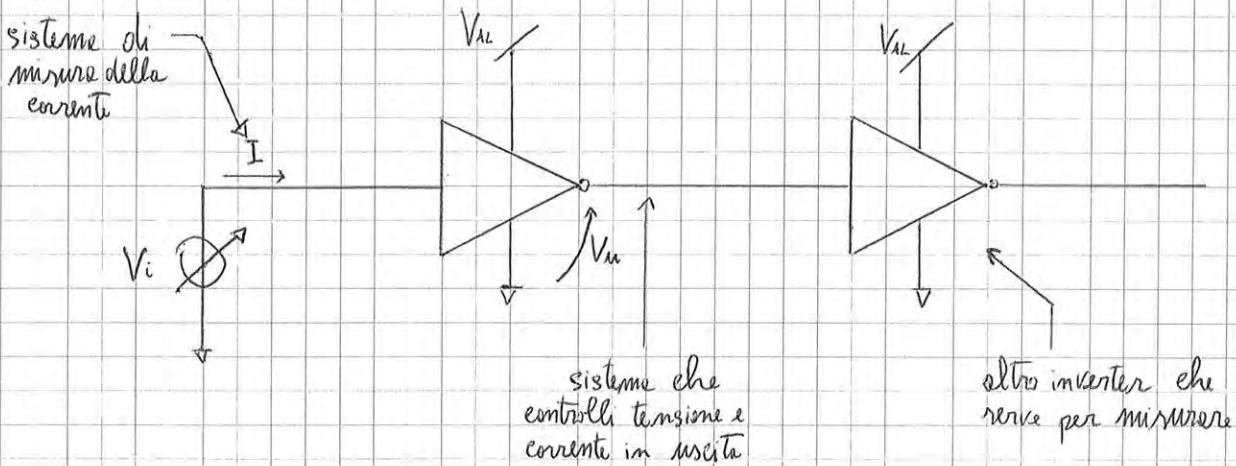 sistema di
misura della
corrente
I
Vi
VAL
Vu
VAL
sistema che
controlli tensione e
corrente in uscita
altro inverter che
serve per misurare